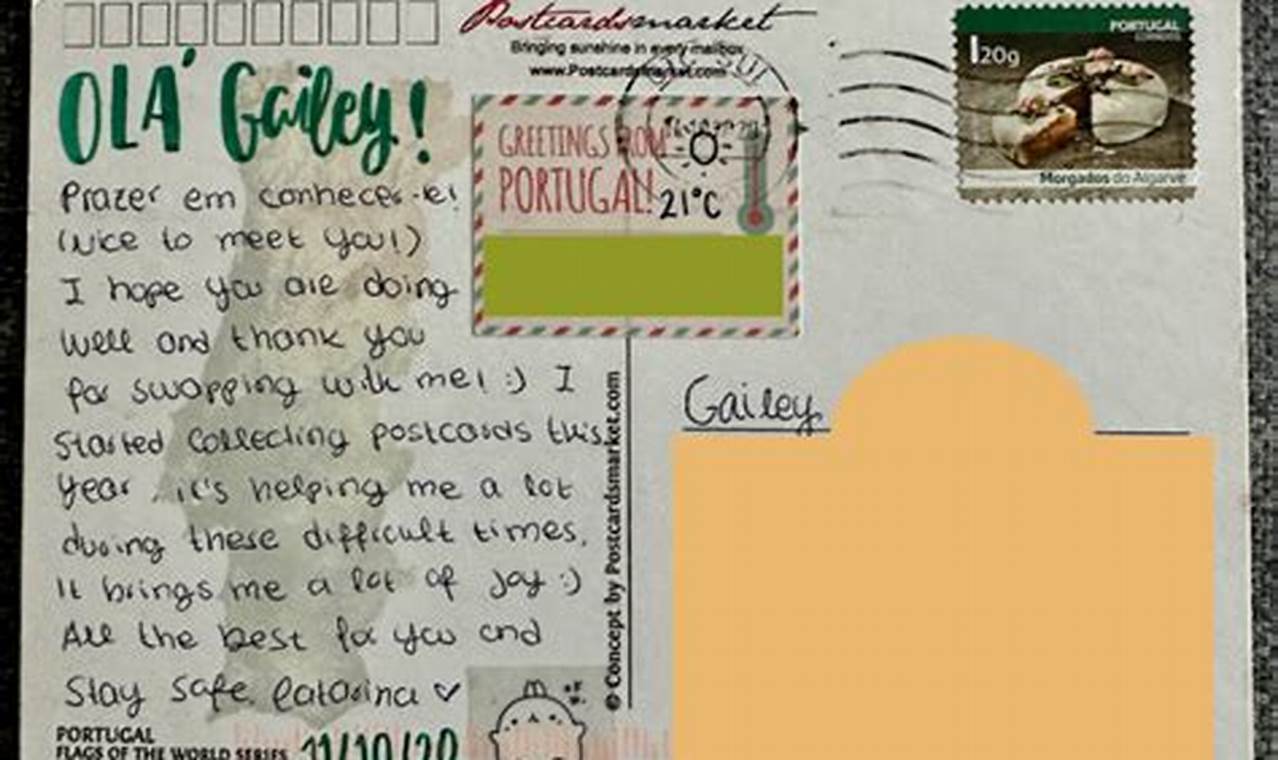 Postcardsmarket
Bringing sunshine in every mailbox
www.Postcardsmarket.com
PORTUGAL
I20g
Morgados do Algarve
OLÁ Gailey!
Prazer em conhecer-te!
(Nice to meet you!)
I hope you are doing
well and thank you
for swapping with me! :) I
started collecting postcards this
year, it's helping me a lot
during these difficult times.
It brings me a lot of joy :)
All the best for you and
Stay safe. Catarina ♡
GREETINGS FROM
PORTUGAL!
21°C
© Concept by Postcardsmarket.com
Gailey
PORTUGAL
FLAGS OF THE WORLD SERIES
11/10/20